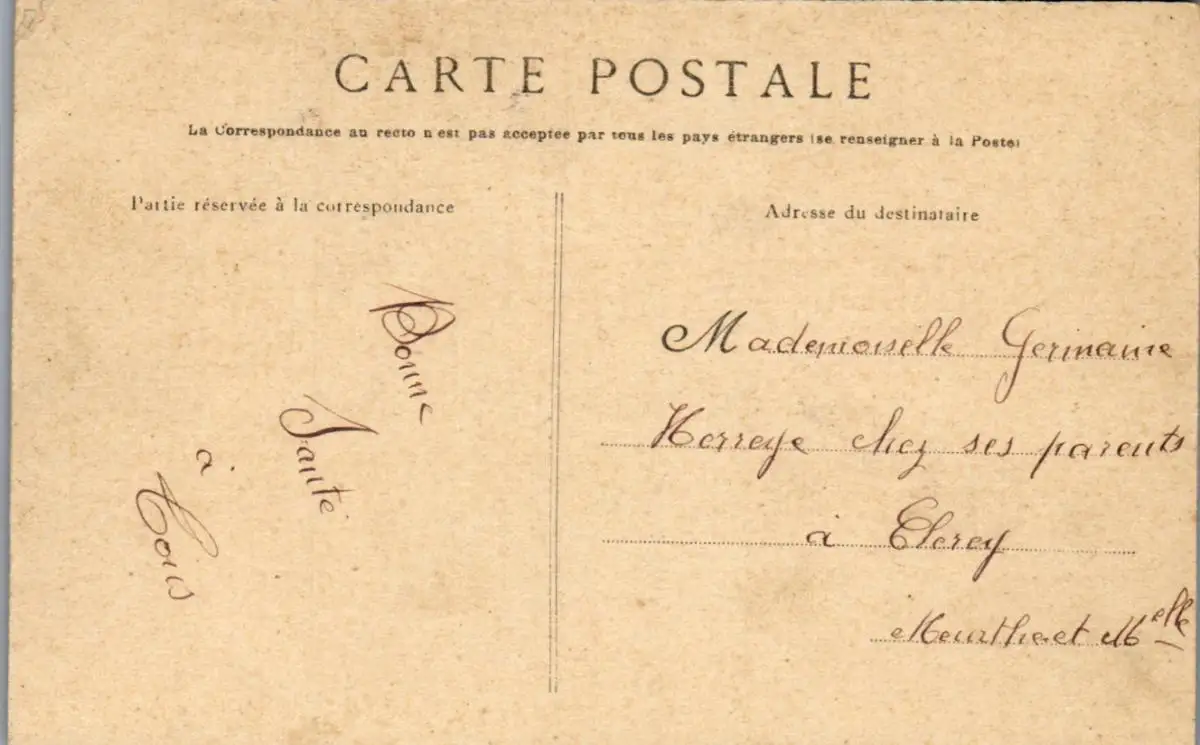 CARTE POSTALE
La Correspondance au recto n'est pas acceptée par tous les pays étrangers (se renseigner à la Poste)
Partie réservée à la correspondance
Adresse du destinataire
Bonne
Santé
à
Tous
Mademoiselle Germaine
chez ses parents
à Clerey
Meurthe et Melle